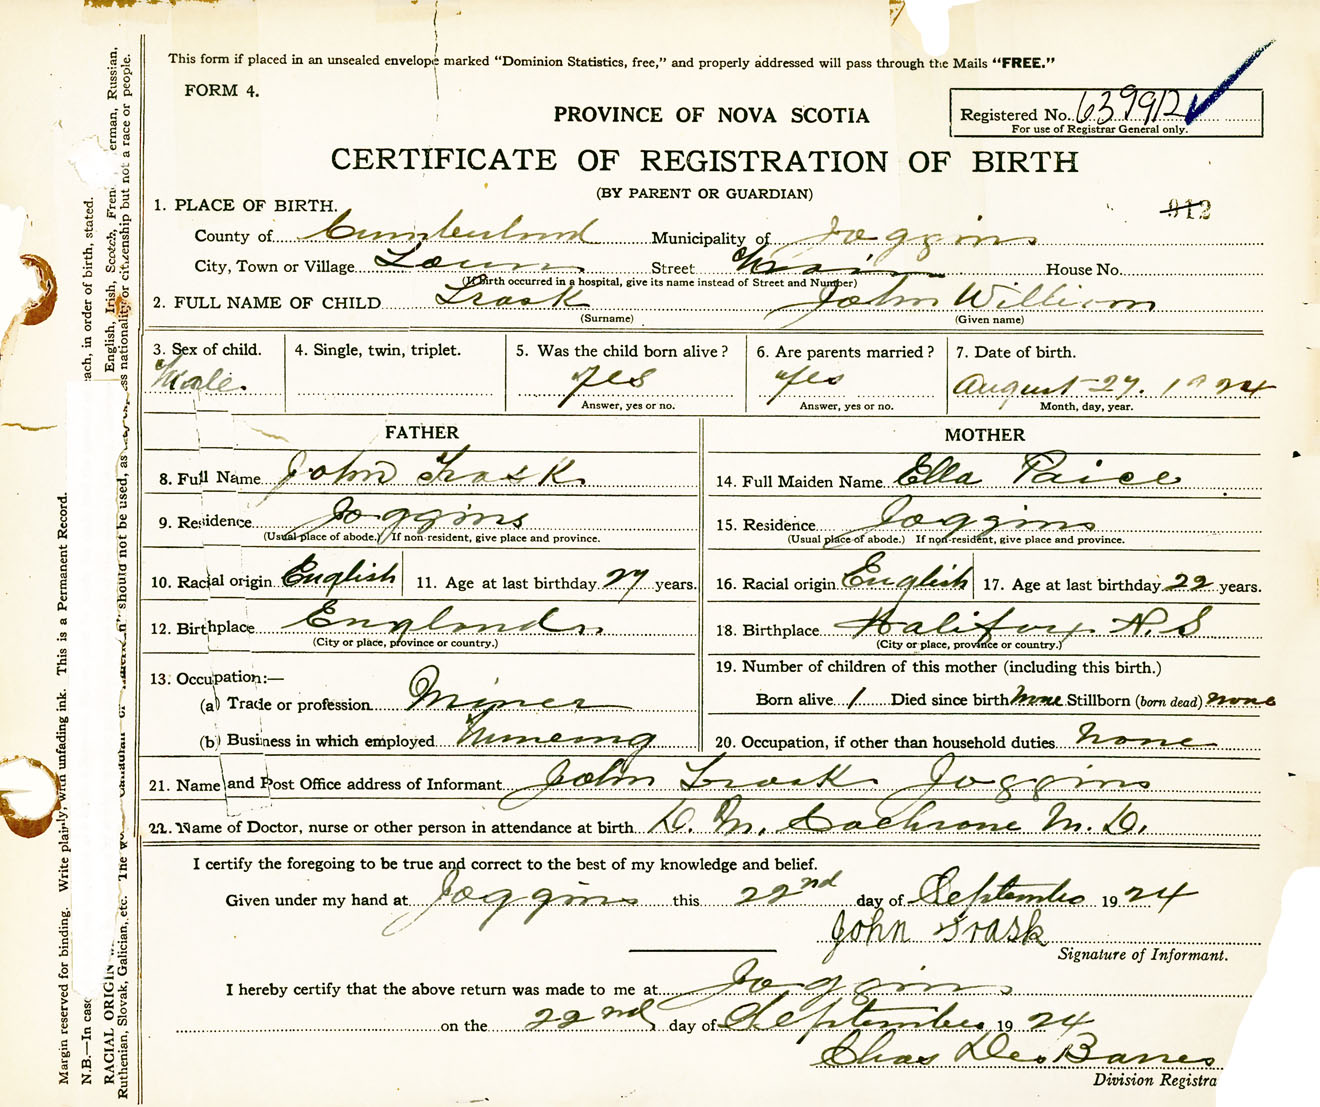 This form if placed in an unsealed envelope marked "Dominion Statistics, free," and properly addressed will pass through the Mails "FREE."
FORM 4.
PROVINCE OF NOVA SCOTIA
Registered No. 639912
For use of Registrar General only.
CERTIFICATE OF REGISTRATION OF BIRTH
(BY PARENT OR GUARDIAN)
1. PLACE OF BIRTH.
912
County of Cumberland Municipality of Joggins
City, Town or Village Town Street Main House No.
(If birth occurred in a hospital, give its name instead of Street and Number)
2. FULL NAME OF CHILD Trask John William
(Surname) (Given name)
3. Sex of child. 4. Single, twin, triplet. 5. Was the child born alive? 6. Are parents married? 7. Date of birth.
Male. yes yes August 27. 1924
Answer, yes or no. Answer, yes or no. Month, day, year.
FATHER MOTHER
8. Full Name John Trask 14. Full Maiden Name Ella Paice
9. Residence Joggins 15. Residence Joggins
(Usual place of abode.) If non-resident, give place and province. (Usual place of abode.) If non-resident, give place and province.
10. Racial origin English 11. Age at last birthday 27 years. 16. Racial origin English 17. Age at last birthday 22 years.
12. Birthplace England 18. Birthplace Halifax N.S
(City or place, province or country.) (City or place, province or country.)
13. Occupation:— 19. Number of children of this mother (including this birth.)
(a) Trade or profession Miner Born alive 1 Died since birth none Stillborn (born dead) none
(b) Business in which employed 20. Occupation, if other than household duties none
21. Name and Post Office address of Informant John Trask Joggins
22. Name of Doctor, nurse or other person in attendance at birth D. M. Cochrane M. D.
I certify the foregoing to be true and correct to the best of my knowledge and belief.
Given under my hand at Joggins this 22nd day of September 1924
John Trask
Signature of Informant.
I hereby certify that the above return was made to me at Joggins
on the 22nd day of September 1924
Chas Des Barres
Division Registra
Margin reserved for binding. Write plainly, with unfading ink. This is a Permanent Record.
N.B.—In case each, in order of birth, stated.
RACIAL ORIGIN English, Irish, Scotch, French, German, Russian,
Ruthenian, Slovak, Galician, etc. The should not be used, as nationality or citizenship but not a race or people.